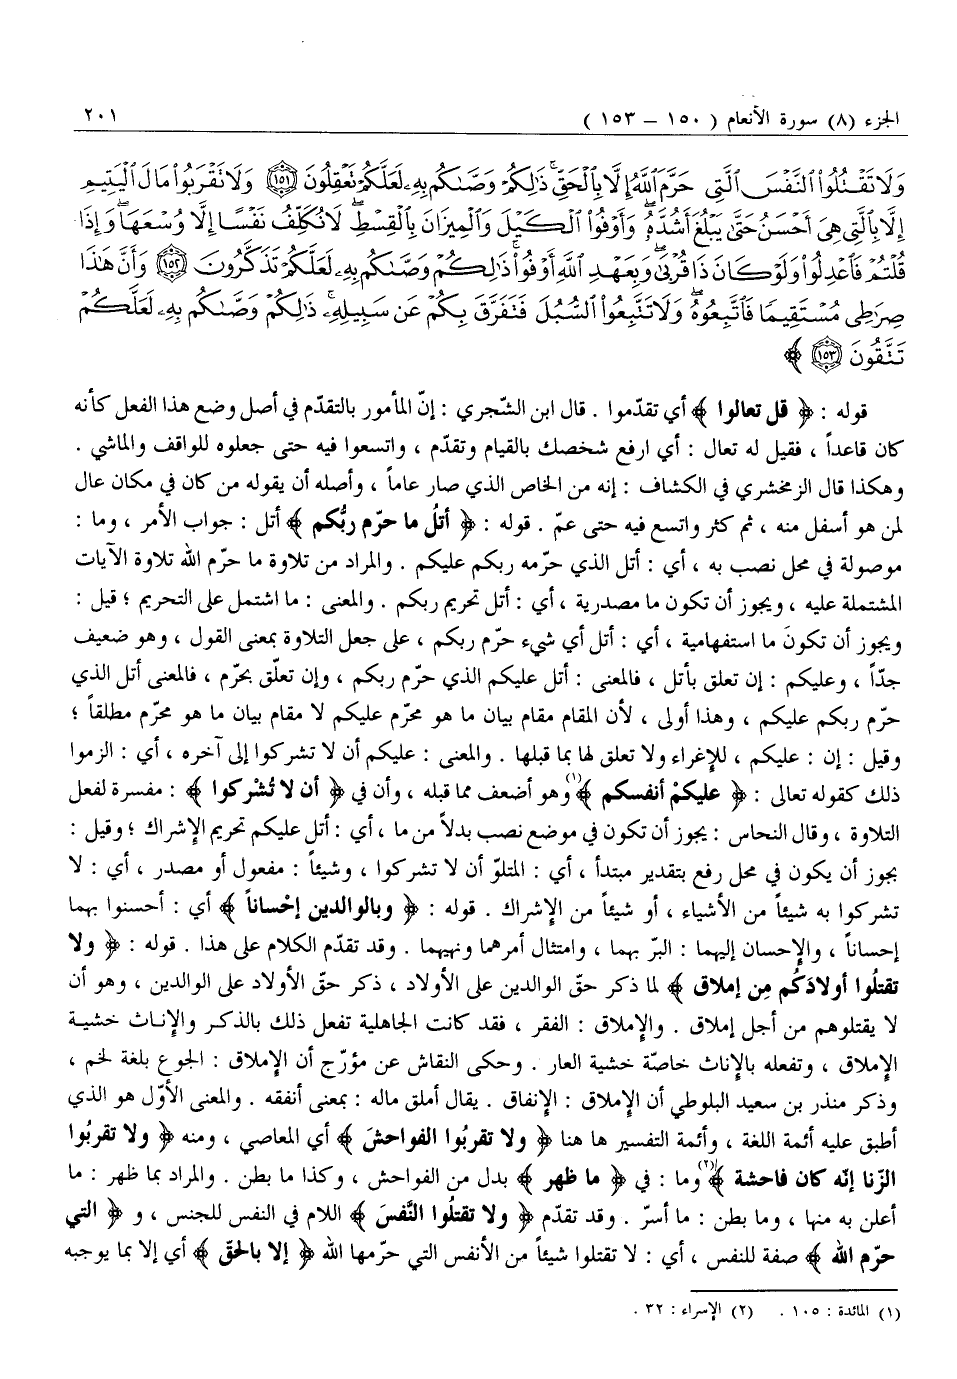 الجزء (٨) سورة الأنعام ( ١٥٠ – ١٥٣ ) ٢٠١
وَلَا تَقْتُلُوا۟ ٱلنَّفْسَ ٱلَّتِى حَرَّمَ ٱللَّهُ إِلَّا بِٱلْحَقِّ ۚ ذَٰلِكُمْ وَصَّىٰكُم بِهِۦ لَعَلَّكُمْ تَعْقِلُونَ ﴿١٥١﴾ وَلَا تَقْرَبُوا۟ مَالَ ٱلْيَتِيمِ
إِلَّا بِٱلَّتِى هِىَ أَحْسَنُ حَتَّىٰ يَبْلُغَ أَشُدَّهُۥ ۖ وَأَوْفُوا۟ ٱلْكَيْلَ وَٱلْمِيزَانَ بِٱلْقِسْطِ ۖ لَا نُكَلِّفُ نَفْسًا إِلَّا وُسْعَهَا ۖ وَإِذَا
قُلْتُمْ فَٱعْدِلُوا۟ وَلَوْ كَانَ ذَا قُرْبَىٰ ۖ وَبِعَهْدِ ٱللَّهِ أَوْفُوا۟ ۚ ذَٰلِكُمْ وَصَّىٰكُم بِهِۦ لَعَلَّكُمْ تَذَكَّرُونَ ﴿١٥٢﴾ وَأَنَّ هَٰذَا
صِرَٰطِى مُسْتَقِيمًا فَٱتَّبِعُوهُ ۖ وَلَا تَتَّبِعُوا۟ ٱلسُّبُلَ فَتَفَرَّقَ بِكُمْ عَن سَبِيلِهِۦ ۚ ذَٰلِكُمْ وَصَّىٰكُم بِهِۦ لَعَلَّكُمْ
تَتَّقُونَ ﴿١٥٣﴾ ﴾
قوله : ﴿ قل تعالوا ﴾ أي تقدّموا . قال ابن الشّجري : إنّ المأمور بالتقدّم في أصل وضع هذا الفعل كأنه
كان قاعداً ، فقيل له تعال : أي ارفع شخصك بالقيام وتقدّم ، واتسعوا فيه حتى جعلوه للواقف والماشي .
وهكذا قال الزمخشري في الكشاف : إنه من الخاص الذي صار عاماً ، وأصله أن يقوله من كان في مكان عال
لمن هو أسفل منه ، ثم كثر واتسع فيه حتى عمّ . قوله : ﴿ أتلُ ما حرّم ربُّكم ﴾ أتل : جواب الأمر ، وما :
موصولة في محل نصب به ، أي : أتل الذي حرّمه ربكم عليكم . والمراد من تلاوة ما حرّم الله تلاوة الآيات
المشتملة عليه ، ويجوز أن تكون ما مصدرية ، أي : أتل تحريم ربكم . والمعنى : ما اشتمل على التحريم ؛ قيل :
ويجوز أن تكونَ ما استفهامية ، أي : أتل أي شيء حرّم ربكم ، على جعل التلاوة بمعنى القول ، وهو ضعيف
جدّاً ، وعليكم : إن تعلق بأتل ، فالمعنى : أتل عليكم الذي حرّم ربكم ، وإن تعلّق بحرّم ، فالمعنى أتل الذي
حرّم ربكم عليكم ، وهذا أولى ، لأن المقام مقام بيان ما هو محرّم عليكم لا مقام بيان ما هو محرّم مطلقاً ؛
وقيل : إن : عليكم ، للإغراء ولا تعلق لها بما قبلها . والمعنى : عليكم أن لا تشركوا إلى آخره ، أي : الزموا
ذلك كقوله تعالى : ﴿ عليكمْ أنفسكم ﴾(١) وهو أضعف مما قبله ، وأن في ﴿ أن لا تُشْركوا ﴾ : مفسرة لفعل
التلاوة ، وقال النحاس : يجوز أن تكون في موضع نصب بدلاً من ما ، أي : أتل عليكم تحريم الإشراك ؛ وقيل :
يجوز أن يكون في محل رفع بتقدير مبتدأ ، أي : المتلوّ أن لا تشركوا ، وشيئاً : مفعول أو مصدر ، أي : لا
تشركوا به شيئاً من الأشياء ، أو شيئاً من الإشراك . قوله : ﴿ وبالوالدين إحْساناً ﴾ أي : أحسنوا بهما
إحساناً ، والإحسان إليهما : البرّ بهما ، وامتثال أمرهما ونهيهما . وقد تقدّم الكلام على هذا . قوله : ﴿ ولا
تقتلُوا أولادَكُم مِن إملاق ﴾ لما ذكر حقّ الوالدين على الأولاد ، ذكر حقّ الأولاد على الوالدين ، وهو أن
لا يقتلوهم من أجل إملاق . والإملاق : الفقر ، فقد كانت الجاهلية تفعل ذلك بالذكر والإناث خشية
الإملاق ، وتفعله بالإناث خاصّة خشية العار . وحكى النقاش عن مؤرّج أن الإملاق : الجوع بلغة لخم ،
وذكر منذر بن سعيد البلوطي أن الإملاق : الإنفاق . يقال أملق ماله : بمعنى أنفقه . والمعنى الأوّل هو الذي
أطبق عليه أئمة اللغة ، وأئمة التفسير ها هنا ﴿ ولا تقربُوا الفواحشَ ﴾ أي المعاصي ، ومنه ﴿ ولا تقربُوا
الزّنا إنّه كان فاحشة ﴾(٢) وما : في ﴿ ما ظهر ﴾ بدل من الفواحش ، وكذا ما بطن . والمراد بما ظهر : ما
أعلن به منها ، وما بطن : ما أسرّ . وقد تقدّم ﴿ ولا تقتلُوا النَّفسَ ﴾ اللام في النفس للجنس ، و ﴿ التي
حرّم الله ﴾ صفة للنفس ، أي : لا تقتلوا شيئاً من الأنفس التي حرّمها الله ﴿ إلا بالحَقّ ﴾ أي إلا بما يوجبه
(١) المائدة : ١٠٥ . (٢) الإسراء : ٣٢ .